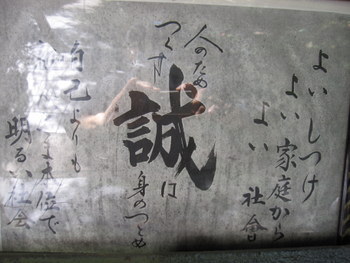 よいしつけ
よい家庭から
よい社會
人のため
つくす
誠は
身のつとめ
自己よりも
本位で
明るい社会